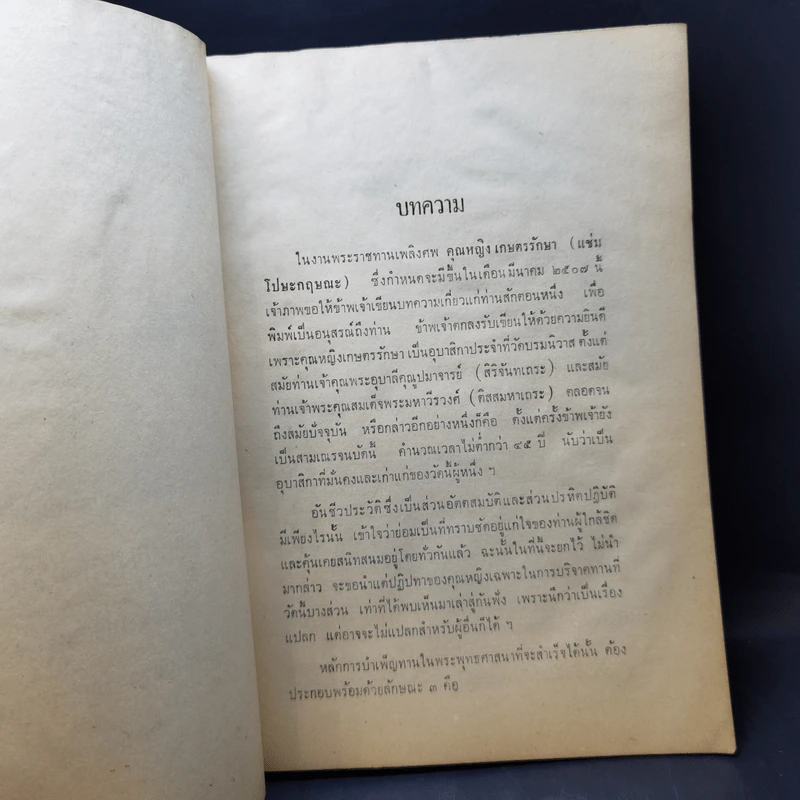 บทความ
ในงานพระราชทานเพลิงศพ คุณหญิง เกษตรรักษา (แช่ม
โปษะกฤษณะ) ซึ่งกำหนดจะมีขึ้นในเดือนมีนาคม ๒๕๐๗ นี้
เจ้าภาพขอให้ข้าพเจ้าเขียนบทความเกี่ยวแก่ท่านสักตอนหนึ่ง เพื่อ
พิมพ์เป็นอนุสรณ์ถึงท่าน ข้าพเจ้าตกลงรับเขียนให้ด้วยความยินดี
เพราะคุณหญิงเกษตรรักษา เป็นอุบาสิกาประจำที่วัดบรมนิวาส ตั้งแต่
สมัยท่านเจ้าคุณพระอุบาลีคุณูปมาจารย์ (สิริจันทเถระ) และสมัย
ท่านเจ้าพระคุณสมเด็จพระมหาวีรวงศ์ (ติสสมหาเถระ) ตลอดจน
ถึงสมัยปัจจุบัน หรือกล่าวอีกอย่างหนึ่งก็คือ ตั้งแต่ครั้งข้าพเจ้ายัง
เป็นสามเณรจนบัดนี้ คำนวณเวลาไม่ต่ำกว่า ๔๕ ปี นับว่าเป็น
อุบาสิกาที่มั่นคงและเก่าแก่ของวัดนี้ผู้หนึ่ง ฯ
อันชีวประวัติซึ่งเป็นส่วนอัตตสมบัติและส่วนปรหิตปฏิบัติ
มีเพียงไรนั้น เข้าใจว่าย่อมเป็นที่ทราบชัดอยู่แก่ใจของท่านผู้ใกล้ชิด
และคุ้นเคยสนิทสนมอยู่โดยทั่วกันแล้ว ฉะนั้นในที่นี้จะยกไว้ ไม่นำ
มากล่าว จะขอนำแต่ปฏิปทาของคุณหญิงเฉพาะในการบริจาคทานที่
วัดนี้บางส่วน เท่าที่ได้พบเห็นมาเล่าสู่กันฟัง เพราะนึกว่าเป็นเรื่อง
แปลก แต่อาจจะไม่แปลกสำหรับผู้อื่นก็ได้ ฯ
หลักการบำเพ็ญทานในพระพุทธศาสนาที่จะสำเร็จได้นั้น ต้อง
ประกอบพร้อมด้วยลักษณะ ๓ คือ